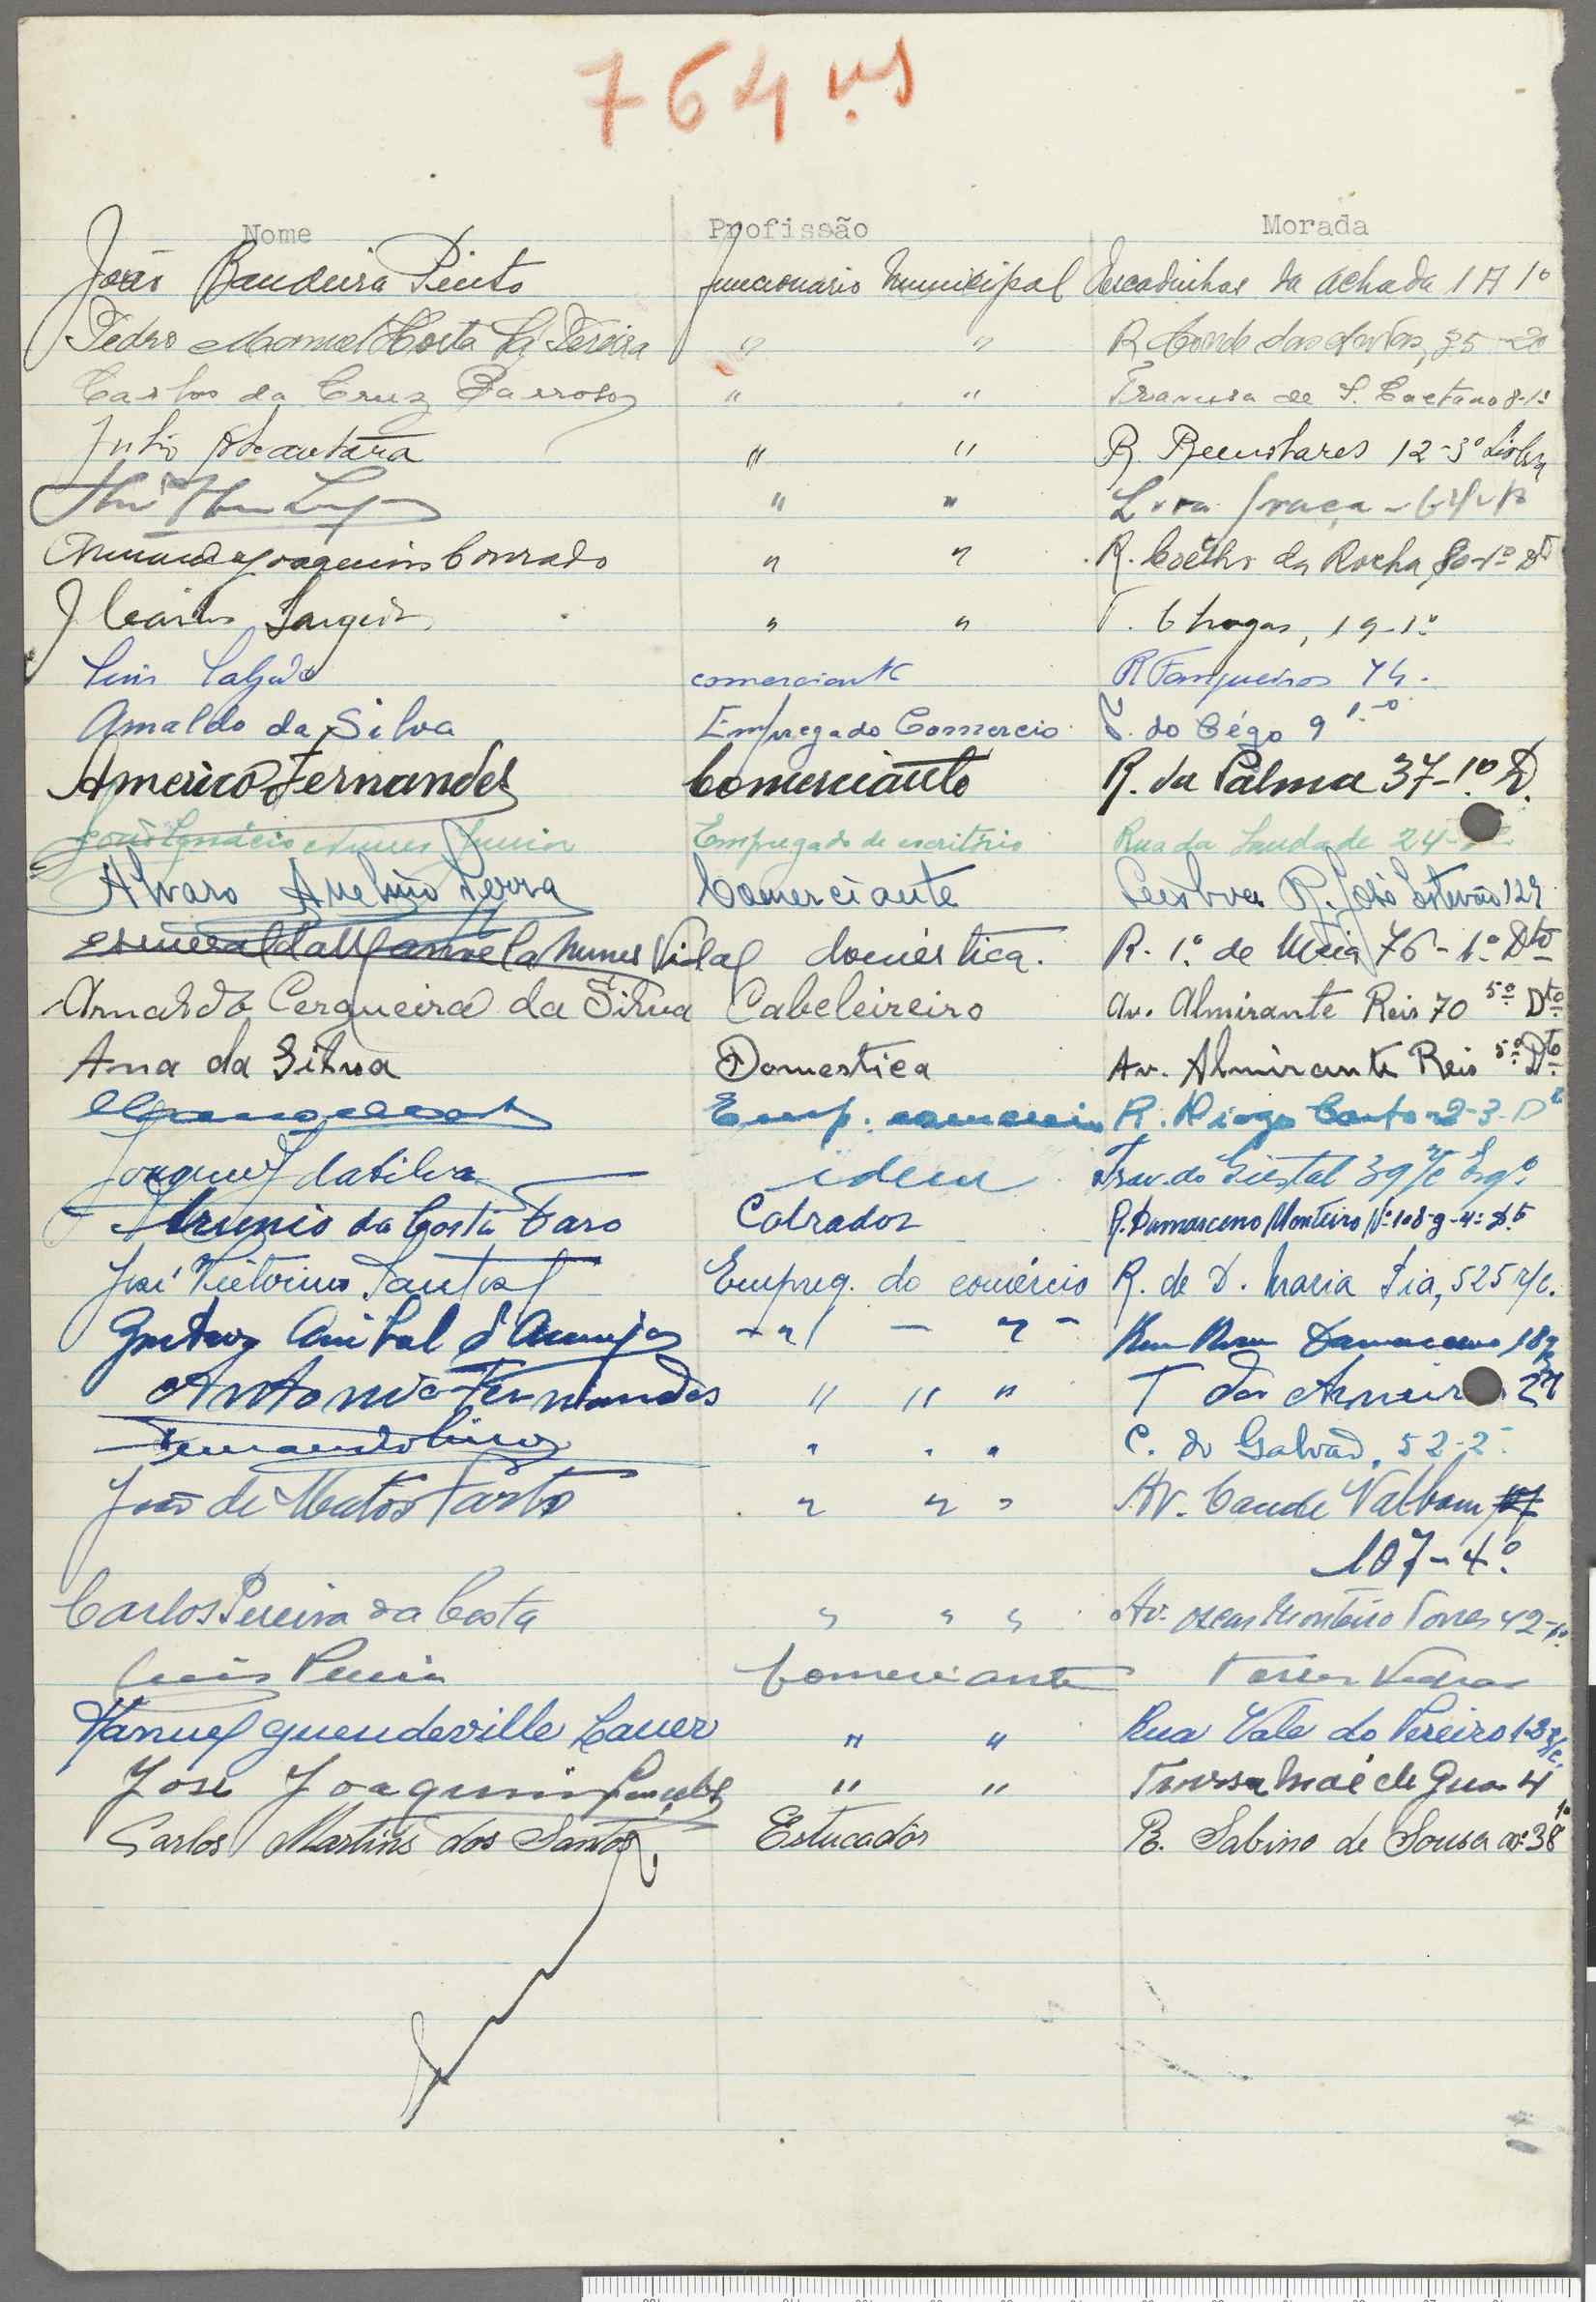 764
Nome Profissão Morada
João Bandeira Pinto funcionario Municipal Escadinhas da Achada 1 A 1º
Pedro Manuel Costa Pereira " " R Conde das Antas, 35 - 2º
Carlos da Cruz Barroso " " Travessa de S. Caetano 8-1º
Julio Alcantara " " R. Remolares 12-3º Lisboa
" "
Joaquim Conrado " " R. Coelho da Rocha 80-1º Dtº
J Carlos " " T. Chagas, 19-1º
Luis Salgado comerciante R Fanqueiros 74.
Arnaldo da Silva Empregado Comercio T. do Cégo 9 1.º
Americo Fernandes Comerciante R. da Palma 37-1º D.
José Ignácio Nunes Junior Empregado de escritório Rua da Saudade 24
Alvaro Avelino Serra Comerciante Lisboa R. José Estevão 129
Esmeralda Manuela Nunes Vidal doméstica. R. 1º de Maio 76-1º Dtº
Arnaldo Cerqueira da Silva Cabeleireiro Av. Almirante Reis 70 5º Dtº
Ana da Silva Domestica Av. Almirante Reis 5º Dtº
Emp. comercio R. Diogo Couto 2-3-D
Joaquim da Silva idem Trav. do Giestal 39 r/c Esqº
da Costa Faro Cobrador R. Damasceno Monteiro Nº 108-g-4º Dtº
José Victorino Santos Empreg. do comércio R. de D. Maria Pia, 525 r/c.
Gustavo Anibal d'Araujo " - " - Damasceno
Antonio Fernandes " " " T das 27
Fernando " . " C. do Galvão, 52-2º
João de Matos " " " Av. Conde Valbom
107-4º
Carlos Pereira da Costa " " " Av. Oscar Monteiro Torres 42-1º
Luis Comerciante Torres Vedras
Manuel Guendeville " " Rua Vale do Pereiro 13 r/c.
José Joaquim " " Travessa Mãe de Gua 4
Carlos Martins dos Santos Estucadôr R. Sabino de Sousa nº 38 1º